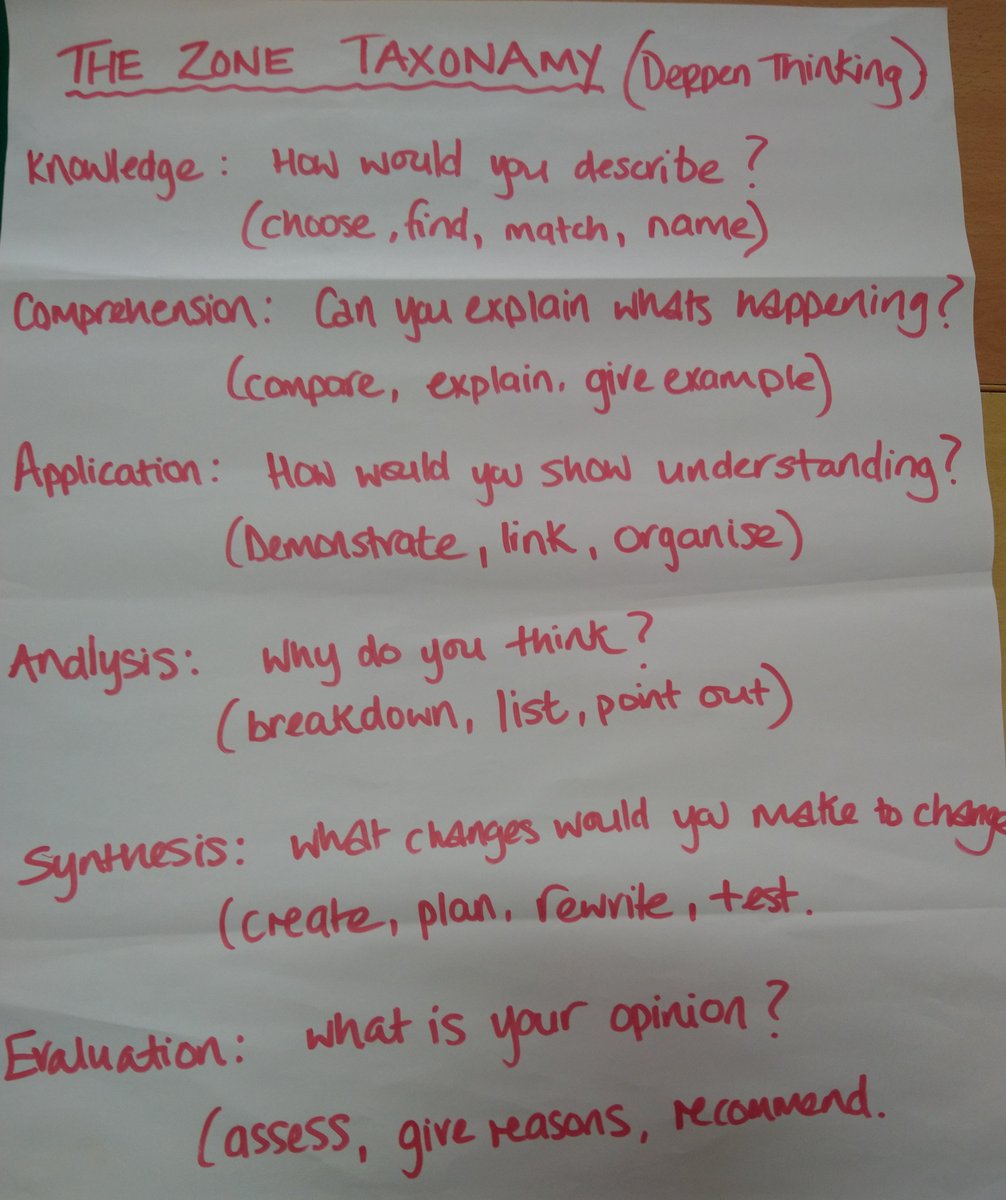 THE ZONE TAXONAMY (Deppen Thinking)
Knowledge: How would you describe?
(choose, find, match, name)
Comprehension: Can you explain whats happening?
(compare, explain. give example)
Application: How would you show understanding?
(Demonstrate, link, organise)
Analysis: Why do you think?
(breakdown, list, point out)
Synthesis: What changes would you make to change
(create, plan, rewrite, test.
Evaluation: What is your opinion?
(assess, give reasons, recommend.